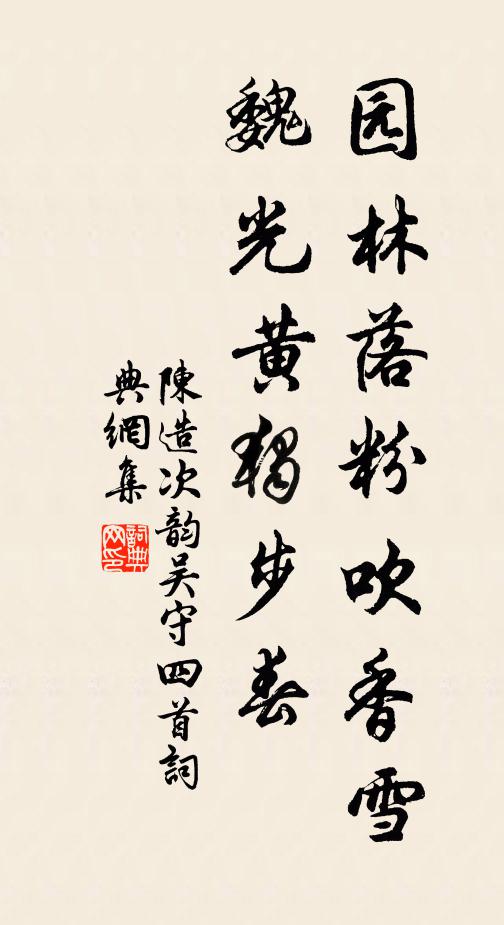 园林落粉吹香雪
魏光黄獨步春
陳造次韵吴守四首詞
典網集
詞典
网印